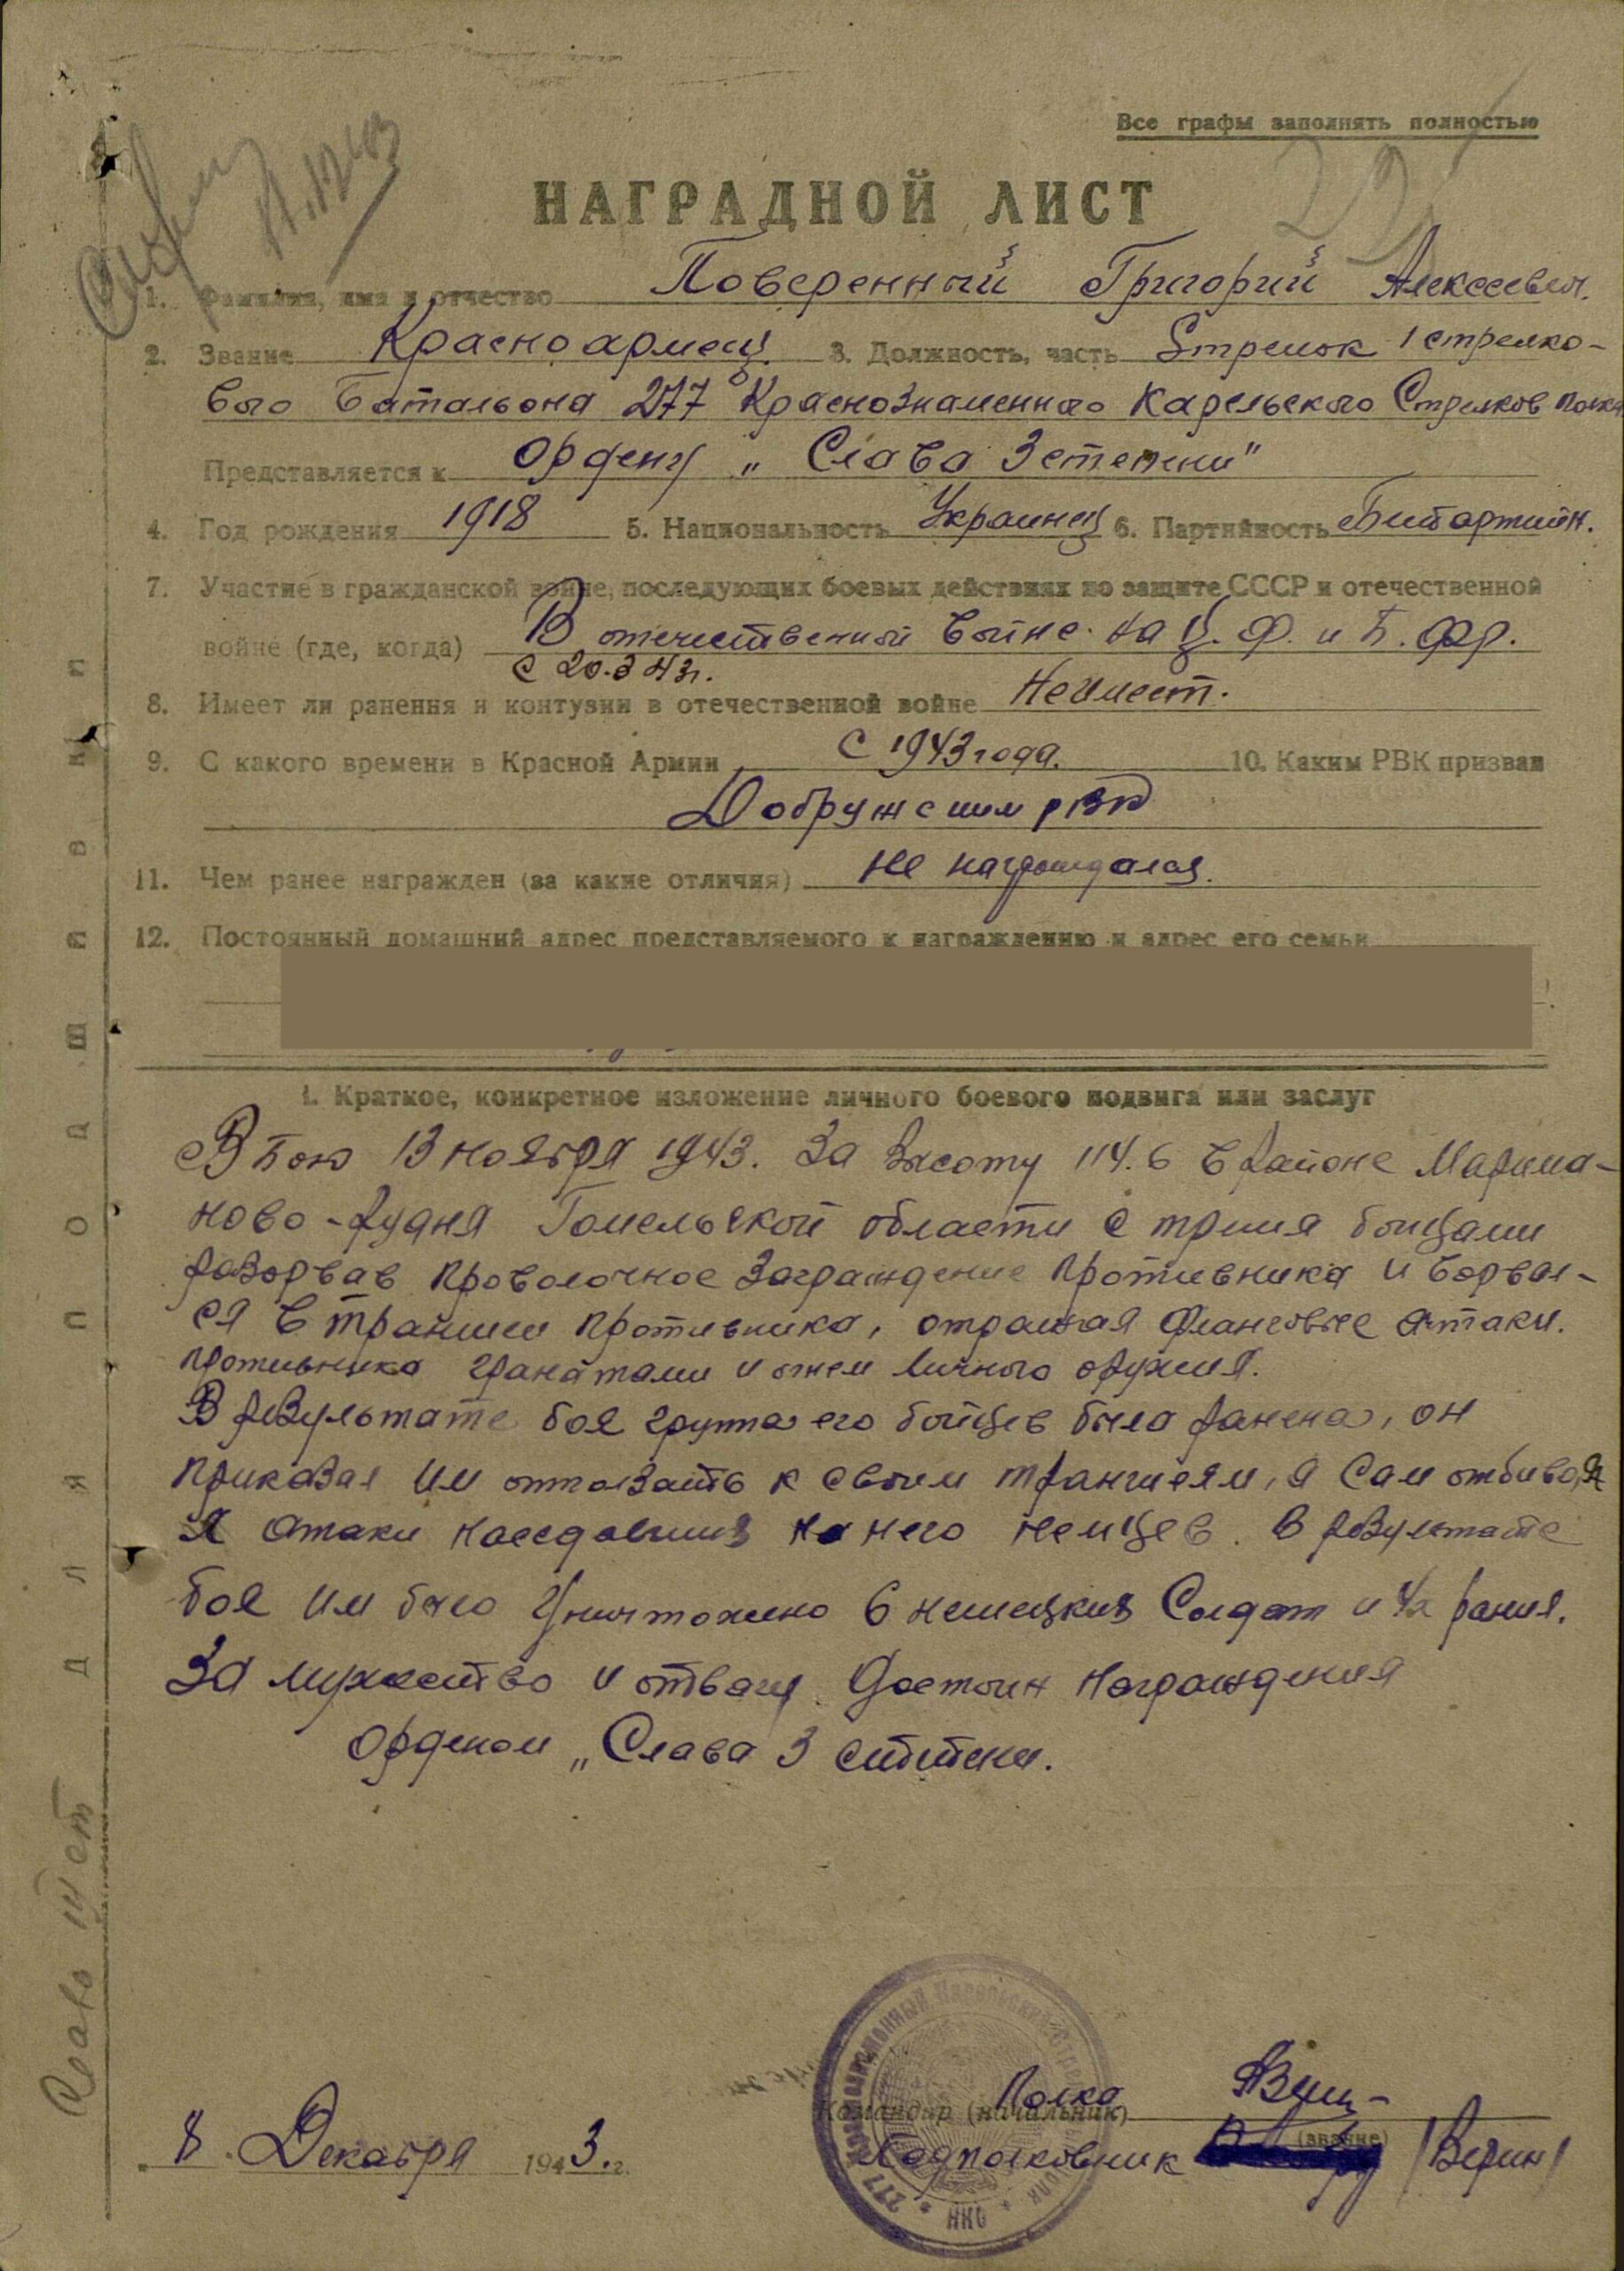 Все графы заполнять полностью
НАГРАДНОЙ ЛИСТ
1. Фамилия, имя и отчество Поверенный Григорий Алексеевич.
2. Звание Красноармец. 3. Должность, часть Стрелок 1 стрелко-
вого Батальона 277 Краснознаменного Карельского Стрелков полка
Представляется к Ордену „Слава 3 степени"
4. Год рождения 1918 5. Национальность Украинец 6. Партийность Беспартийн.
7. Участие в гражданской войне, последующих боевых действиях по защите СССР и отечественной
войне (где, когда) В отечественной войне на Ц. Ф. и Б. Фр.
с 20.3 43г.
8. Имеет ли ранения и контузии в отечественной войне Не имеет.
9. С какого времени в Красной Армии С 1943 года. 10. Каким РВК призван
Добружским РВК
11. Чем ранее награжден (за какие отличия) не награждался.
12. Постоянный домашний адрес представляемого к награждению и адрес его семьи
1. Краткое, конкретное изложение личного боевого подвига или заслуг
В бою 13 ноября 1943. За Высоту 114.6 в районе Марима-
ново-Рудня Гомельской области с тремя бойцами
разорвав проволочное заграждение противника и ворвал-
ся в траншеи противника, отражая фланговые атаки.
противника гранатами и огнем личного оружия.
В результате боя группа его бойцев была ранена, он
приказал им отползать к своим траншеям, а сам отбивая
атаки наседавших на него немцев. В результате
боя им было уничтожено 6 немецких Солдат и 4х ранил.
За мужество и отвагу Достоин награждения
Орденом „Слава 3 степени.
Командир (начальник) Полка
(звание)
Подполковник /Верин/
„8" Декабря 1943. г.
277 Краснознаменный Карельский Стрелковый полк
НКО
Для подшивки
Слава III ст